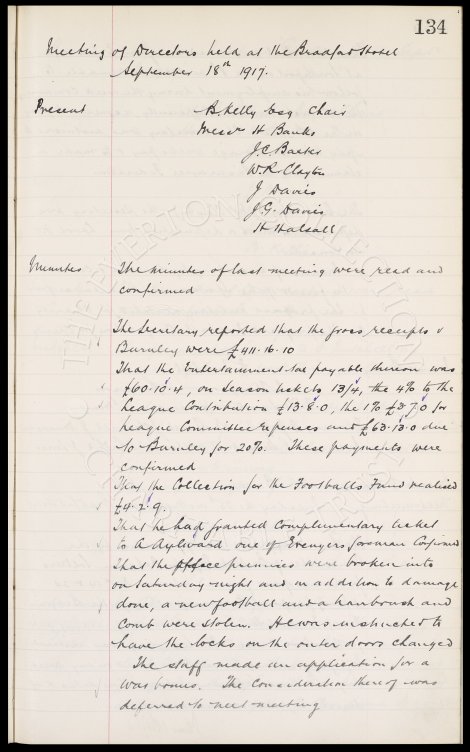 134
Meeting of Directors held at the Bradford Hotel
September 18th 1917.
Present B. Kelly Esq Chair
Messrs H Banks
J.C. Baxter
W.R. Clayton
J Davies
J.G. Davies
H Halsall
Minutes The minutes of last meeting were read and
confirmed
The Secretary reported that the gross receipts v
Burnley were £411.16.10
That the Entertainment tax payable thereon was
£60.10.4, on season tickets 13/4, the 4% to the
League Contribution £13.8.0, the 1% £3.7.0 for
League Committee Expenses and £63.13.0 due
to Burnley for 20%. These payments were
confirmed
That the Collection for the Footballs Fund realised
£4.2.9.
That he had granted Complimentary ticket
to A Aylward one of foreman Confirmed
That the office premises were broken into
on Saturday night and in addition to damage
done, a new football and a hairbrush and
comb were stolen. He was instructed to
have the locks on the outer doors changed
The staff made an application for a
War bonus. The Consideration thereof was
deferred to next meeting
THE EVERTON COLLECTION
TRUST